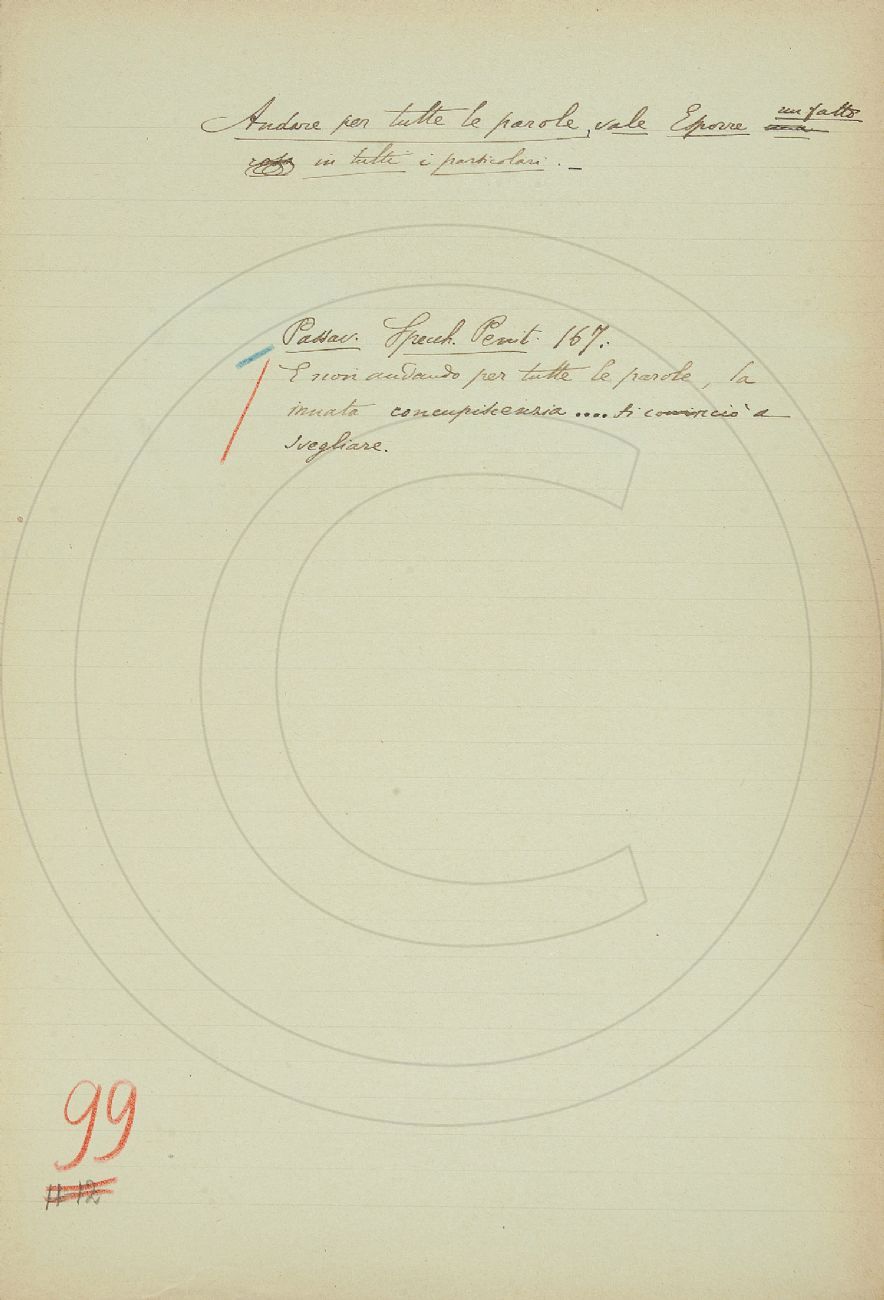 Andare per tutte le parole, vale Esporre un fatto
in tutti i particolari. _
Passav. Specch. Penit. 167.
E non andando per tutte le parole, la
innata concupiscenzia .... si cominciò a
svegliare.
99
11 12